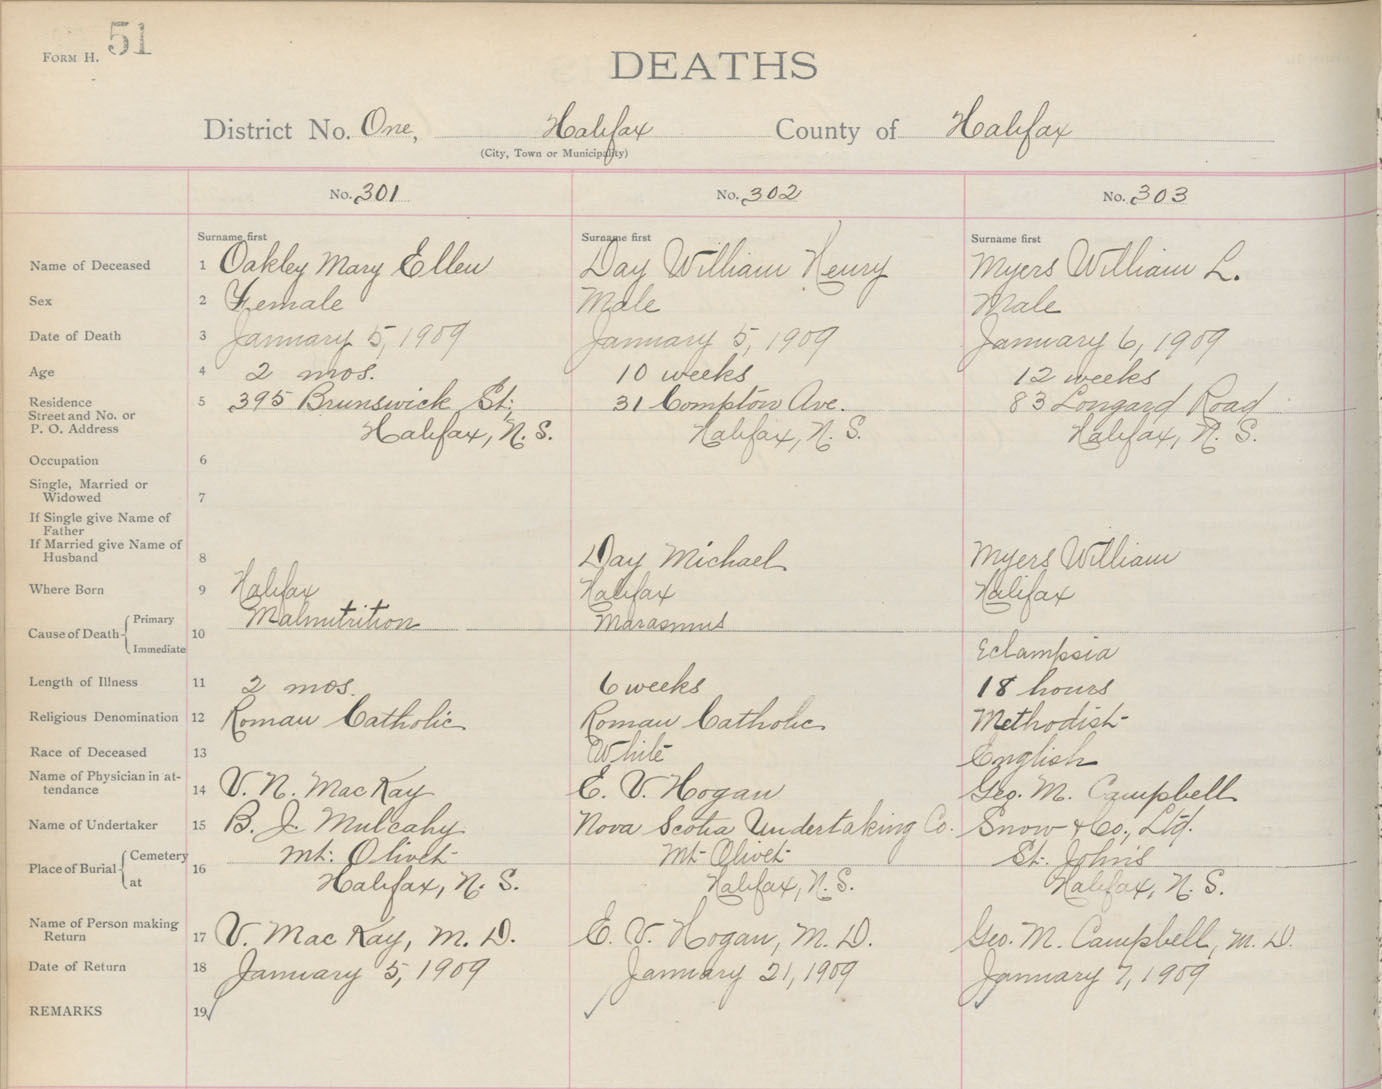 FORM H. 51
DEATHS
District No. One, Halifax County of Halifax
(City, Town or Municipality)
No. 301 No. 302 No. 303
Surname first Surname first Surname first
Name of Deceased 1 Oakley Mary Ellen Day William Henry Myers William L.
Sex 2 Female Male Male
Date of Death 3 January 5, 1909 January 5, 1909 January 6, 1909
Age 4 2 mos. 10 weeks 12 weeks
Residence 5 395 Brunswick St; 31 Compton Ave. 83 Longard Road
Street and No. or
P. O. Address Halifax, N. S. Halifax, N. S. Halifax, N. S.
Occupation 6
Single, Married or
Widowed 7
If Single give Name of
Father
If Married give Name of
Husband 8 Day Michael Myers William
Where Born 9 Halifax Halifax Halifax
Primary Malnutrition Marasmus
Cause of Death 10
Immediate Eclampsia
Length of Illness 11 2 mos. 6 weeks 18 hours
Religious Denomination 12 Roman Catholic Roman Catholic Methodist
Race of Deceased 13 White English
Name of Physician in at-
tendance 14 V. N. MacKay E. V. Hogan Geo. M. Campbell
Name of Undertaker 15 B. J. Mulcahy Nova Scotia Undertaking Co. Snow & Co., Ltd.
Cemetery Mt. Olivet Mt Olivet St. John's
Place of Burial 16
at Halifax, N. S. Halifax, N. S. Halifax, N. S.
Name of Person making
Return 17 V. MacKay, M. D. E. V. Hogan, M. D. Geo. M. Campbell, M. D.
Date of Return 18 January 5, 1909 January 21, 1909 January 7, 1909
REMARKS 19